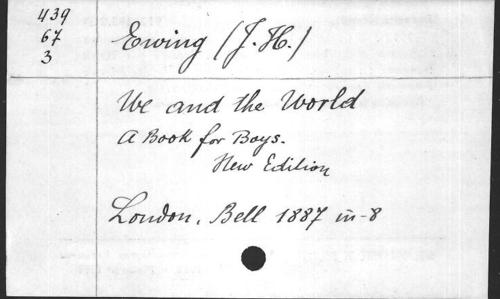 439
67
3
Ewing (J. H.)
We and the World
A Book for Boys.
New Edition
London, Bell 1887 in-8